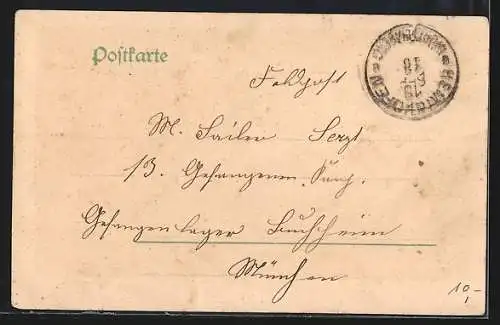 Postkarte
Feldpost
M. Sailer Sergt
13. Gefangenen
Gefangenlager Buchheim
München
10,-